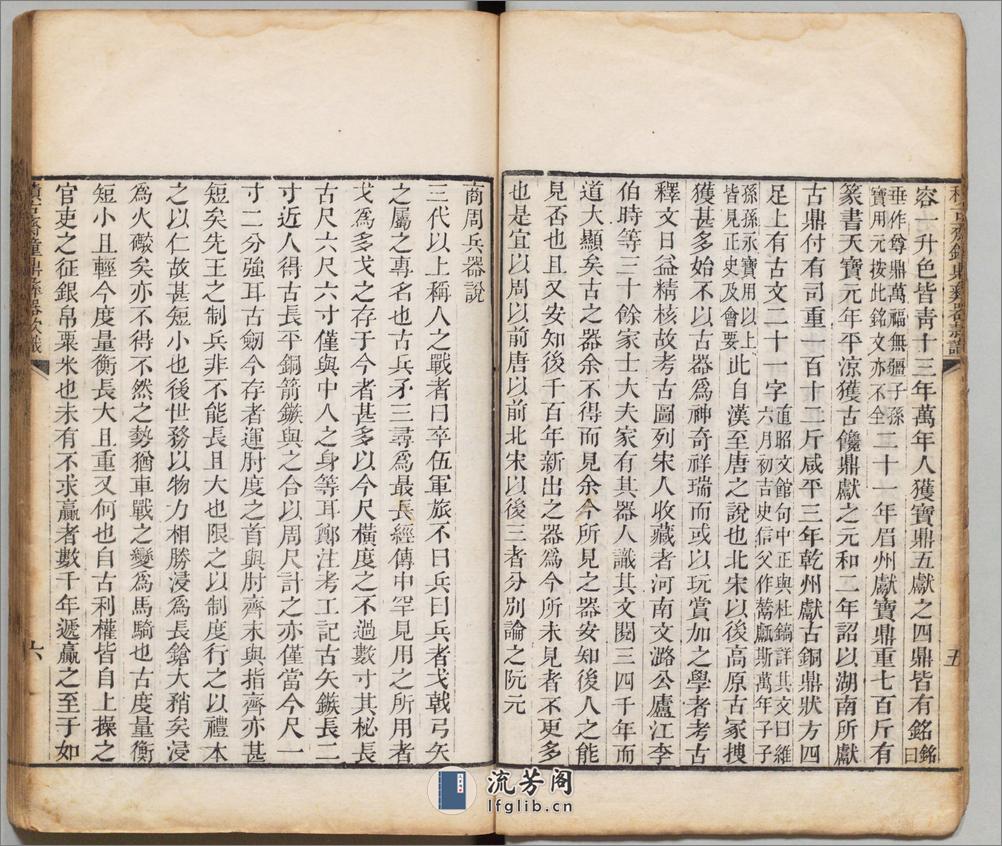 積古齋鐘鼎彝器款識
容一升色皆靑十三年萬年人獲寶鼎五獻之四鼎皆有銘銘曰
垂作尊鼎萬福無疆子孫寶用元按此銘文亦不全二十一年眉州獻寶鼎重七百斤有
篆書天寶元年平涼獲古鑱鼎獻之元和二年詔以湖南所獻
古鼎付有司重一百十二斤咸平三年乾州獻古銅鼎狀方四
足上有古文二十一字直昭文館句中正與杜鎬詳其文曰維六月初吉史信父作鬻甗斯萬年子子
孫孫永寶用以上皆見正史及會要此自漢至唐之說也北宋以後高原古冢搜
獲甚多始不以古器爲神奇祥瑞而或以玩賞加之學者考古
釋文日益精核故考古圖列宋人收藏者河南文潞公廬江李
伯時等三十餘家士大夫家有其器人識其文閱三四千年而
道大顯矣古之器余不得而見余今所見之器安知後人之能
見否也且又安知後千百年新出之器爲今所未見者不更多
也是宜以周以前唐以前北宋以後三者分別論之阮元
五
商周兵器說
三代以上稱人之戰者曰卒伍軍旅不曰兵曰兵者戈戟弓矢
之屬之專名也古兵矛三尋爲最長經傳中罕見用之所用者
戈爲多戈之存于今者甚多以今尺橫度之不過數寸其柲長
古尺六尺六寸僅與中人之身等耳鄭注考工記古矢鏃長二
寸近人得古長平銅箭鏃與之合以周尺計之亦僅當今尺一
寸二分強耳古劒今存者運肘度之首與肘齊末與指齊亦甚
短矣先王之制兵非不能長且大也限之以制度行之以禮本
之以仁故甚短小也後世務以物力相勝浸爲長鎗大矟矣浸
爲火礮矣亦不得不然之勢猶車戰之變爲馬騎也古度量衡
短小且輕今度量衡長大且重又何也自古利權皆自上操之
官吏之征銀帛粟米也未有不求贏者數千年遞贏之至于如
積古齋鐘鼎彝器款識
六
流芳阁
lfglib.cn